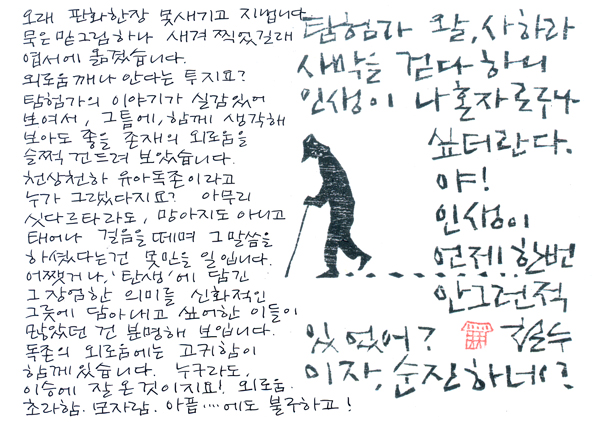 오래 판화한장 못새기고 지냅니다.
묵은 밑그림하나 새겨 찍었길래
엽서에 옮겼습니다.
외로움깨나 안다는 투지요?
탐험가의 이야기가 실감있어
보여서, 그틈에, 함께 생각해
보아도 좋을 존재의 외로움을
슬쩍 건드려 보았습니다.
천상천하 유아독존이라고
누가 그랬다지요? 아무리
싯다르타라도, 망아지도 아니고
태어나 걸음을 떼며 그말씀을
하셨다는건 못믿을 일입니다.
어쨌거나, '탄생'에 담긴
그 장엄한 의미를 신화적인
그릇에 담아내고 싶어한 이들이
많았던 건 분명해 보입니다.
독존의 외로움에는 고귀함이
함께 있습니다. 누구라도,
이승에 잘 온 것이지요! 외로움.
초라함. 모자람. 아픔····에도 불구하고!
탐험가 왈, 사하라
사막을 걷다 하의
인생이 나혼자로구나
싶더란다.
야!
인생이
언제 한번
안그런적
있었어?
철수
이자, 순진하네!?